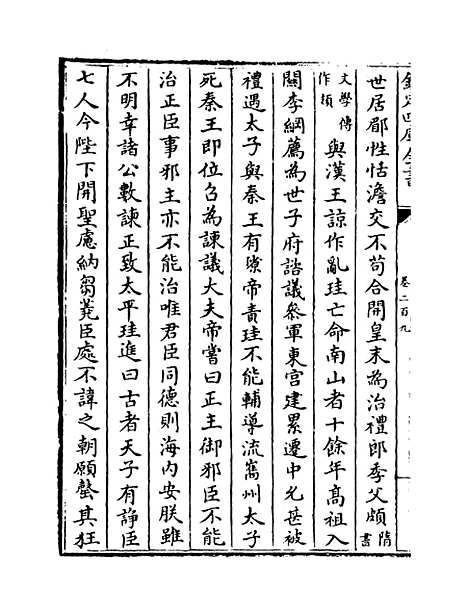 欽定四庫全書
卷二百九
世居郿性恬澹交不苟合開皇末為治禮郎季父頗隋書
文學傳作頍與漢王諒作亂珪亡命南山者十餘年高祖入
關李綱薦為世子府諮議叅軍東宫建累遷中允甚被
禮遇太子與秦王有隙帝責珪不能輔導流嶲州太子
死秦王即位召為諫議大夫帝嘗曰正主御邪臣不能
治正臣事邪主亦不能治唯君臣同德則海内安朕雖
不明幸諸公數諫正致太平珪進曰古者天子有諍臣
七人今陛下開聖慮納芻蕘臣處不諱之朝願罄其狂